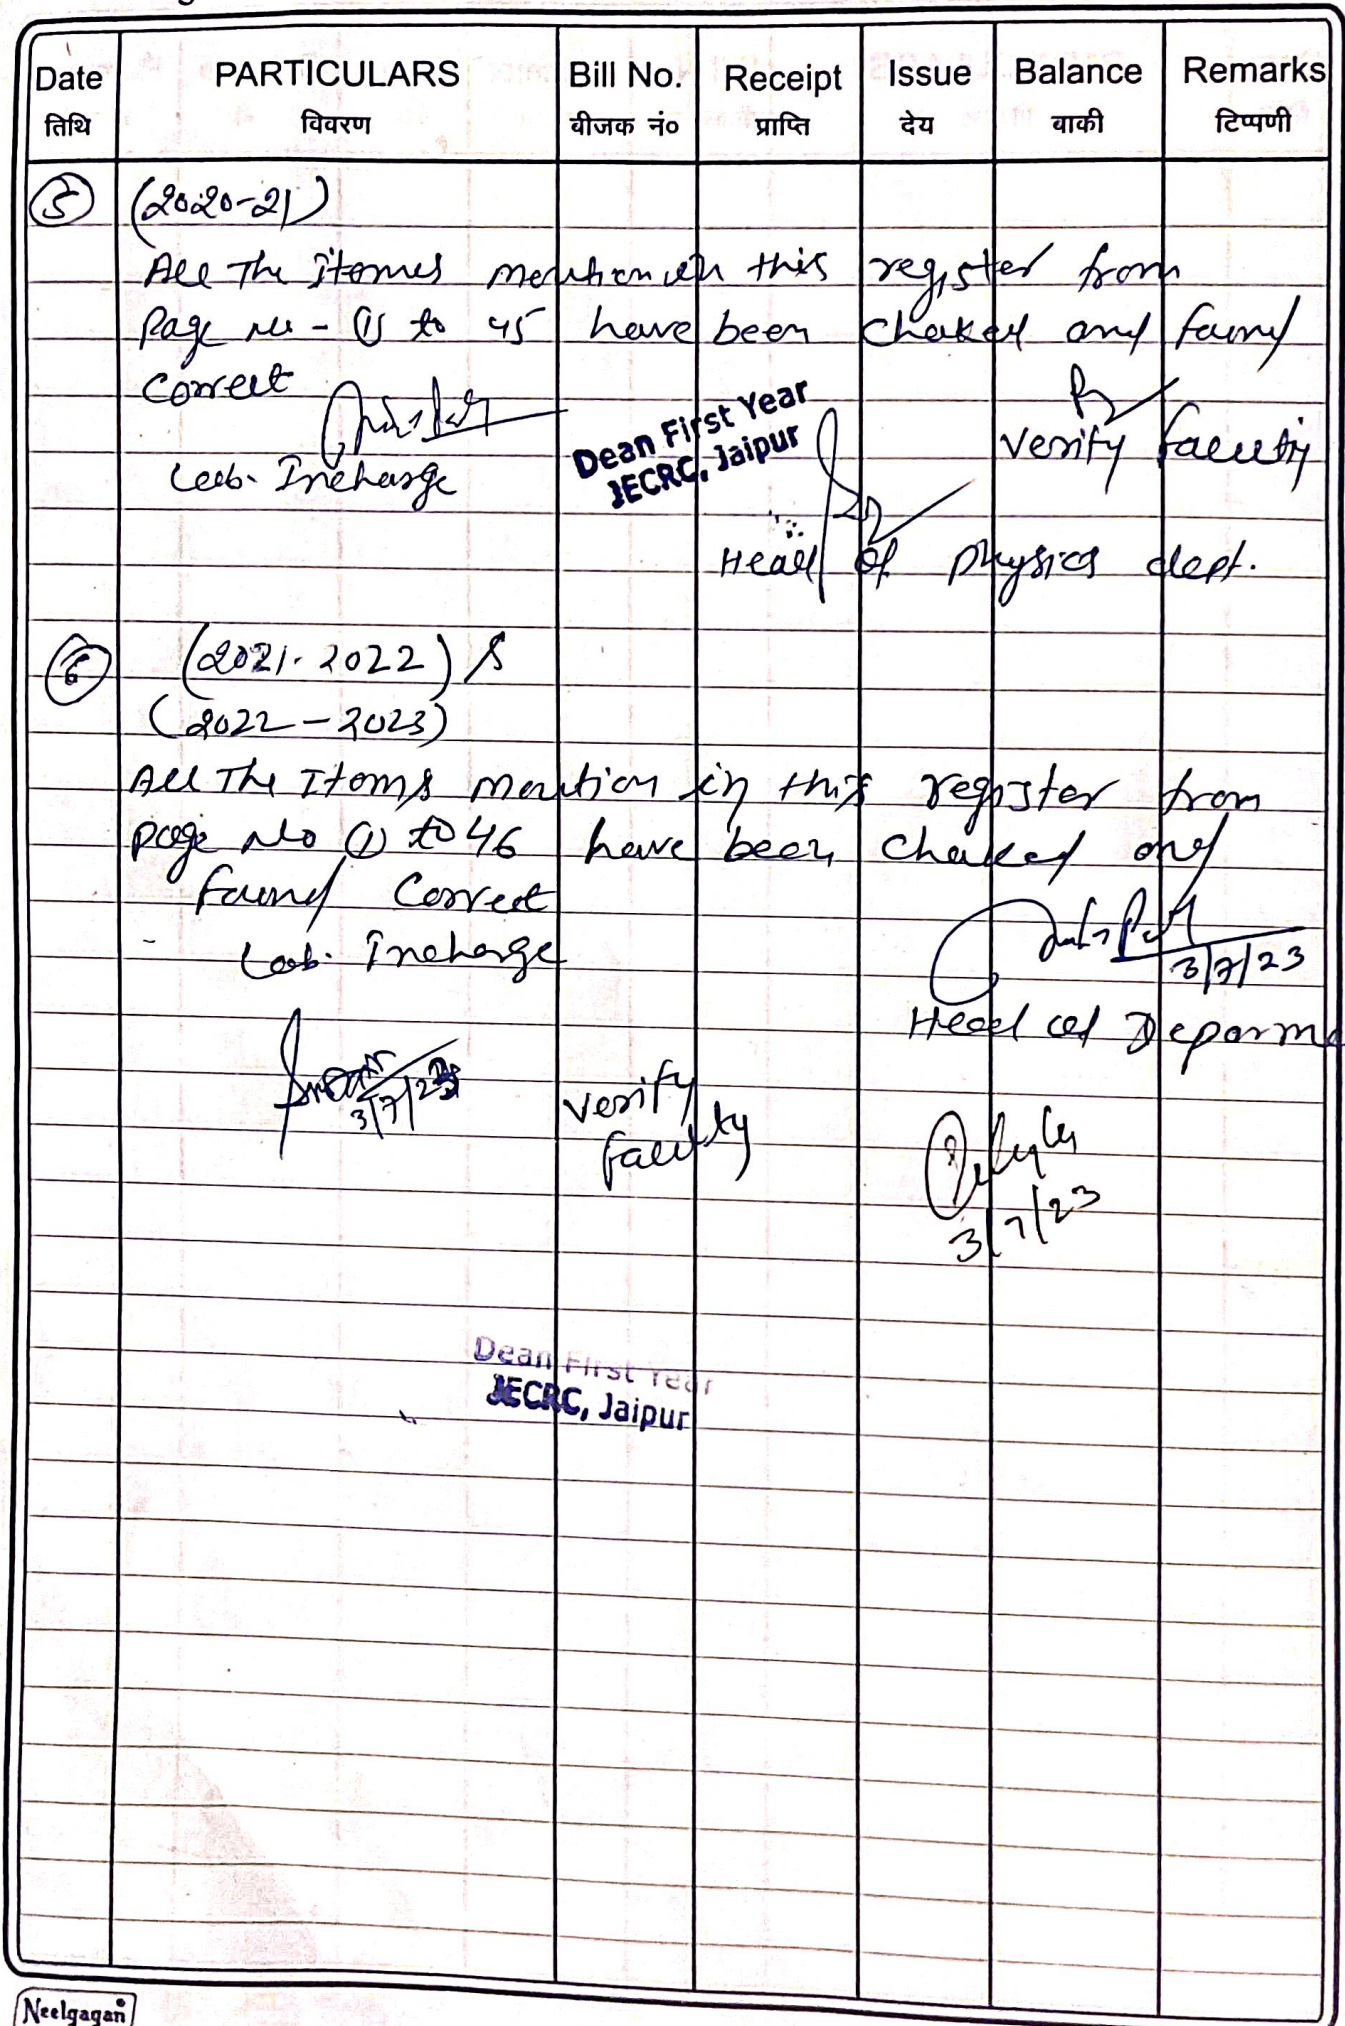 Date PARTICULARS Bill No. Receipt Issue Balance Remarks
तिथि विवरण बीजक नं० प्राप्ति देय बाकी टिप्पणी
5 (2020-21)
All The Itomes mention in this register from
Page no - (1) to 45 have been chaked and found
Correct
Dean First Year
JECRC, Jaipur
Verify faculty
Lab. Incharge
Head of physics dept.
6 (2021-2022) &
(2022-2023)
All The Itoms mention in this register from
page No (1) to 46 have been chaked and
found Correct
Lab. Incharge
3/7/23
Head of Deparme
3/7/23
verify
faculty
3/7/23
Dean First Year
JECRC, Jaipur
Neelgagan